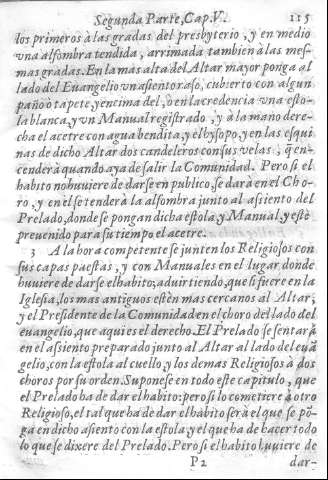 Segunda Parte, Cap. V. 115
los primeros à las gradas del presbyterio, y en medio
vna alfombra tendida, arrimada tambien à las mes-
mas gradas. En la mas alta del Altar mayor ponga al
lado del Euangelio vn asiento raso, cubierto con algun
paño ò tapete, y encima del, ò en la credencia vna esto-
la blanca, y vn Manual registrado, y à la mano dere-
cha el acetre con agua bendita, y el hysopo, y en las esqui
nas de dicho Altar dos candeleros con sus velas, q̃ en-
cenderà quando aya de salir la Comunidad. Pero si el
habito no huuiere de darse en publico, se darà en el Cho-
ro, y en el se tenderà la alfombra junto al asiento del
Prelado, donde se pongan dicha estola, y Manual, y estè
preuenido para su tiempo el acetre.
3 A la hora competente se junten los Religiosos con
sus capas puestas, y con Manuales en el lugar donde
huuiere de darse el habito; aduirtiendo, que si fuere en la
Iglesia, los mas antiguos estèn mas cercanos al Altar,
y el Presidente de la Comunidad en el choro del lado del
euangelio, que aqui es el derecho. El Prelado se sentarà
en el assiento preparado junto al Altar al lado del euã
gelio, con la estola al cuello, y los demas Religiosos à dos
choros por su orden. Suponese en todo este capitulo, que
el Prelado ha de dar el habito: pero si lo cometiere à otro
Religioso, el tal que ha de dar el habito serà el que se põ-
ga en dicho asiento con la estola, y el que ha de hacer todo
lo que se dixere del Prelado. Pero si el habito huuiere de
P2 dar-